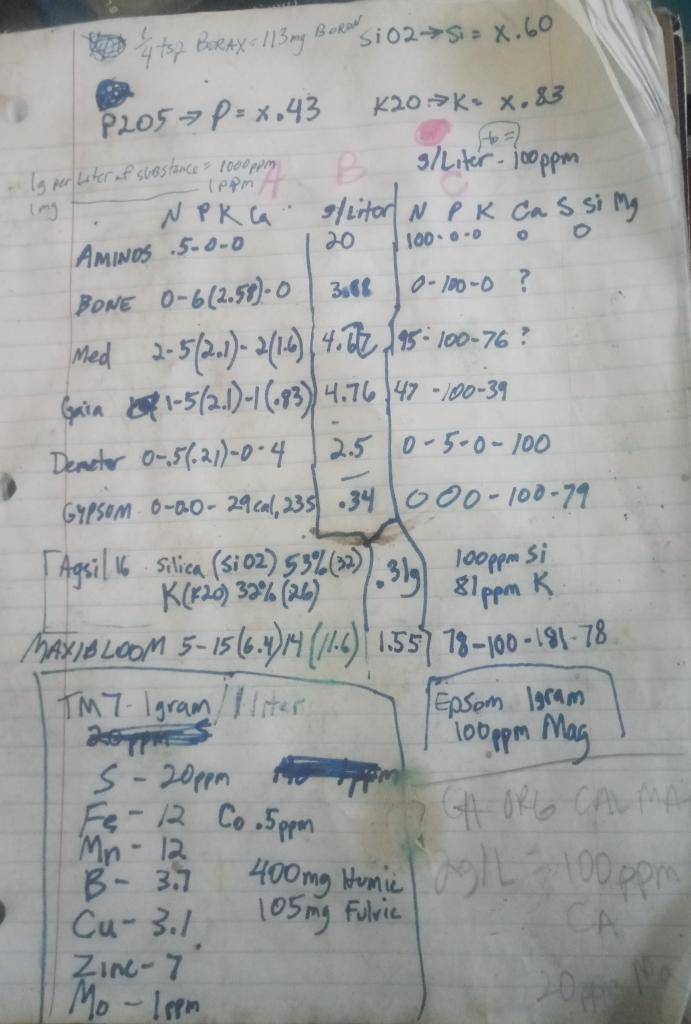 1/4 tsp BORAX = 113mg BORON
SiO2 → Si = x.60
P2O5 → P = x.43
K2O → K = x.83
to =
g/Liter - 100ppm
1g per Liter of substance = 1000ppm
1mg 1ppm
A B C
N P K Ca g/Liter N P K Ca S Si Mg
AMINOS .5-0-0 20 100-0-0 0 0
BONE 0-6(2.58)-0 3.88 0-100-0 ?
Med 2-5(2.1)-2(1.6) 4.67 95-100-76 ?
Gaia 1-5(2.1)-1(.83) 4.76 47-100-39
Demeter 0-.5(.21)-0-4 2.5 0-5-0-100
GYPSOM 0-0.0- 29cal, 23S .34 0 0 0-100-79
Agsil 16 silica (SiO2) 53% (32) .31g 100ppm Si
K(K2O) 32% (26) 81ppm K
MAXIBLOOM 5-15(6.4)14(11.6) 1.55 78-100-181-78
TM7-1gram/1 liter
20ppm S
S - 20ppm
Fe - 12 Co .5ppm
Mn - 12
B - 3.7 400mg Humic
Cu - 3.1 105mg Fulvic
Zinc - 7
Mo - 1ppm
Epsom 1gram
100ppm Mag
GH ORG CAL MA
2g/L = 100ppm
CA
20ppm